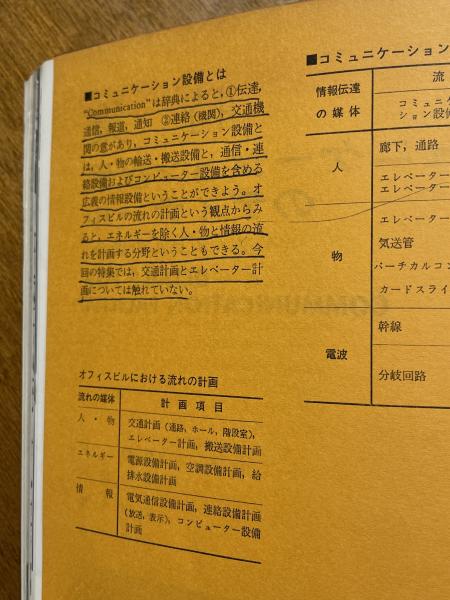 ■コミュニケーション設備とは
"Communication"は辞典によると，①伝達，
通信，報道，通知　②連絡（機関），交通機
関の意があり，コミュニケーション設備と
は，人・物の輸送・搬送設備と，通信・連
絡設備およびコンピューター設備を含める
広義の情報設備ということができよう。オ
フィスビルの流れの計画という観点からみ
ると，エネルギーを除く人・物と情報の流
れを計画する分野ということもできる。今
回の特集では，交通計画とエレベーター計
画については触れていない。
オフィスビルにおける流れの計画
流れの媒体　計画項目
人・物　交通計画（通路，ホール，階段室），
エレベーター計画，搬送設備計画
エネルギー　電源設備計画，空調設備計画，給
排水設備計画
情報　電気通信設備計画，連絡設備計画
（放送，表示），コンピューター設備
計画
■コミュニケーション
情報伝達
の媒体
流
コミュニケ
ーション設備
人　廊下，通路
エレベーター
エレベーター
物　エレベーター
気送管
バーチカルコン
カードスライ
電波　幹線
分岐回路